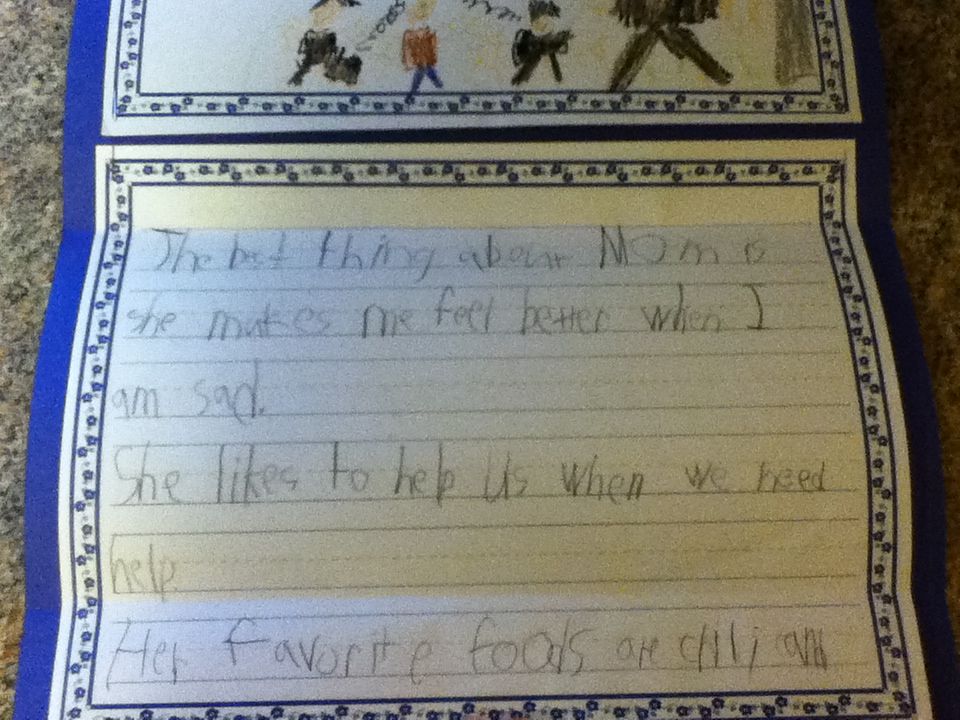 The best thing about Mom is
she makes me feel better when I
am sad.
She likes to help us when we need
help.
Her favorite foods are chili and